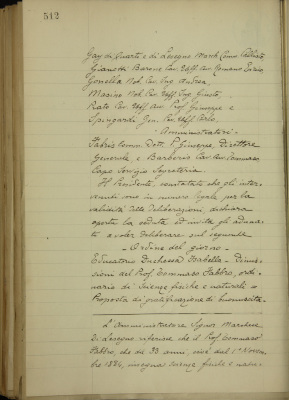 512
Gay di Quarti e di Lesegno March. Comm. Calisto
Gianotti Barone Cav. Uff. Avv. Romano Enrico
Gonella Nob. Cav. Ing. Andrea
Masino Nob. Cav. Uff. Ing. Giusto
Prato Cav. Uff. Avv. Prof. Giuseppe e
Spingardi Gen. Cav. Uff. Carlo.
Amministratori -
Fabris Comm. Dott. P. Giuseppe, Direttore
Generale e Barberis Cav. Avv. Tommaso
Capo Servizio Segreteria.
Il Presidente, constatato che gli inter-
venuti sono in numero legale per la
validità delle deliberazioni, dichiara
aperta la seduta ed invita gli aduna-
ti a voler deliberare sul seguente
- Ordine del giorno -
Educatorio Duchessa Isabella - Dimis-
sioni del Prof. Tommaso Fabbro, ordi-
nario di Scienze fisiche e naturali e
Proposta di gratificazione di buonuscita.
L'Amministratore Signor Marchese
di Lesegno riferisce che il Prof. Tommaso
Fabbro, che da 33 anni, cioè dal 1° Novem-
bre 1884, insegna scienze fisiche e natu-